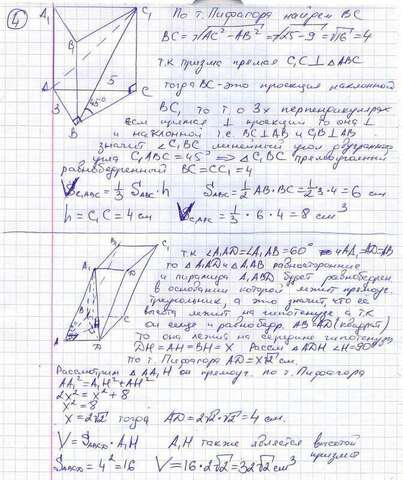 4
A₁ C₁
По т. Пифагора найдем BC
B₁
BC = √AC² - AB² = √25-9 = √16 = 4
т.к призма прямая C₁C ⊥ △ABC
A 5 C
тогда BC - это проекция наклонной
3
45°
B
BC₁ то т о 3х перпендикулярах
если прямая ⊥ проекции то она ⊥
и наклонной т.е BC⊥AB и C₁B⊥AB
значит ∠C₁BC линейный угол двугранного
угла C₁ABC = 45° ⇒ △C₁BC прямоугольный
равнобедренный BC = CC₁ = 4
V C₁ABC = 1/3 S ABC · h S ABC = 1/2 AB · BC = 1/2 3·4 = 6 см
h = C₁C = 4 см V C₁ABC = 1/3 · 6 · 4 = 8 см³
B₁ C₁
т.к ∠A₁AD = ∠A₁AB = 60° AA₁ = AD = AB
A₁ D₁
то △A₁AD и △A₁AB равносторонние
и пирамида A₁ABD будет равнобедрен
в основании которой лежит прямоуг.
треугольник, а это значит что ее
высота лежит на гипотенузе а т.к
B C
он еще и равнобедр. AB=AD (квадрат)
A D
То она лежит на середине гипотенузы
DH = AH = BH = X Рассм △ADH ∠H=90°
по т. Пифагора AD = X√2 см.
Рассмотрим △AA₁H он прямоуг. по т. Пифагора
AA₁² = A₁H² + AH²
2x² = x² + 8
x² = 8
x = 2√2 тогда AD = 2√2 · √2 = 4 см.
V = S ABCD · A₁H A₁H также является высотой
призмы
S ABCD = 4² = 16 V = 16 · 2√2 = 32√2 см³